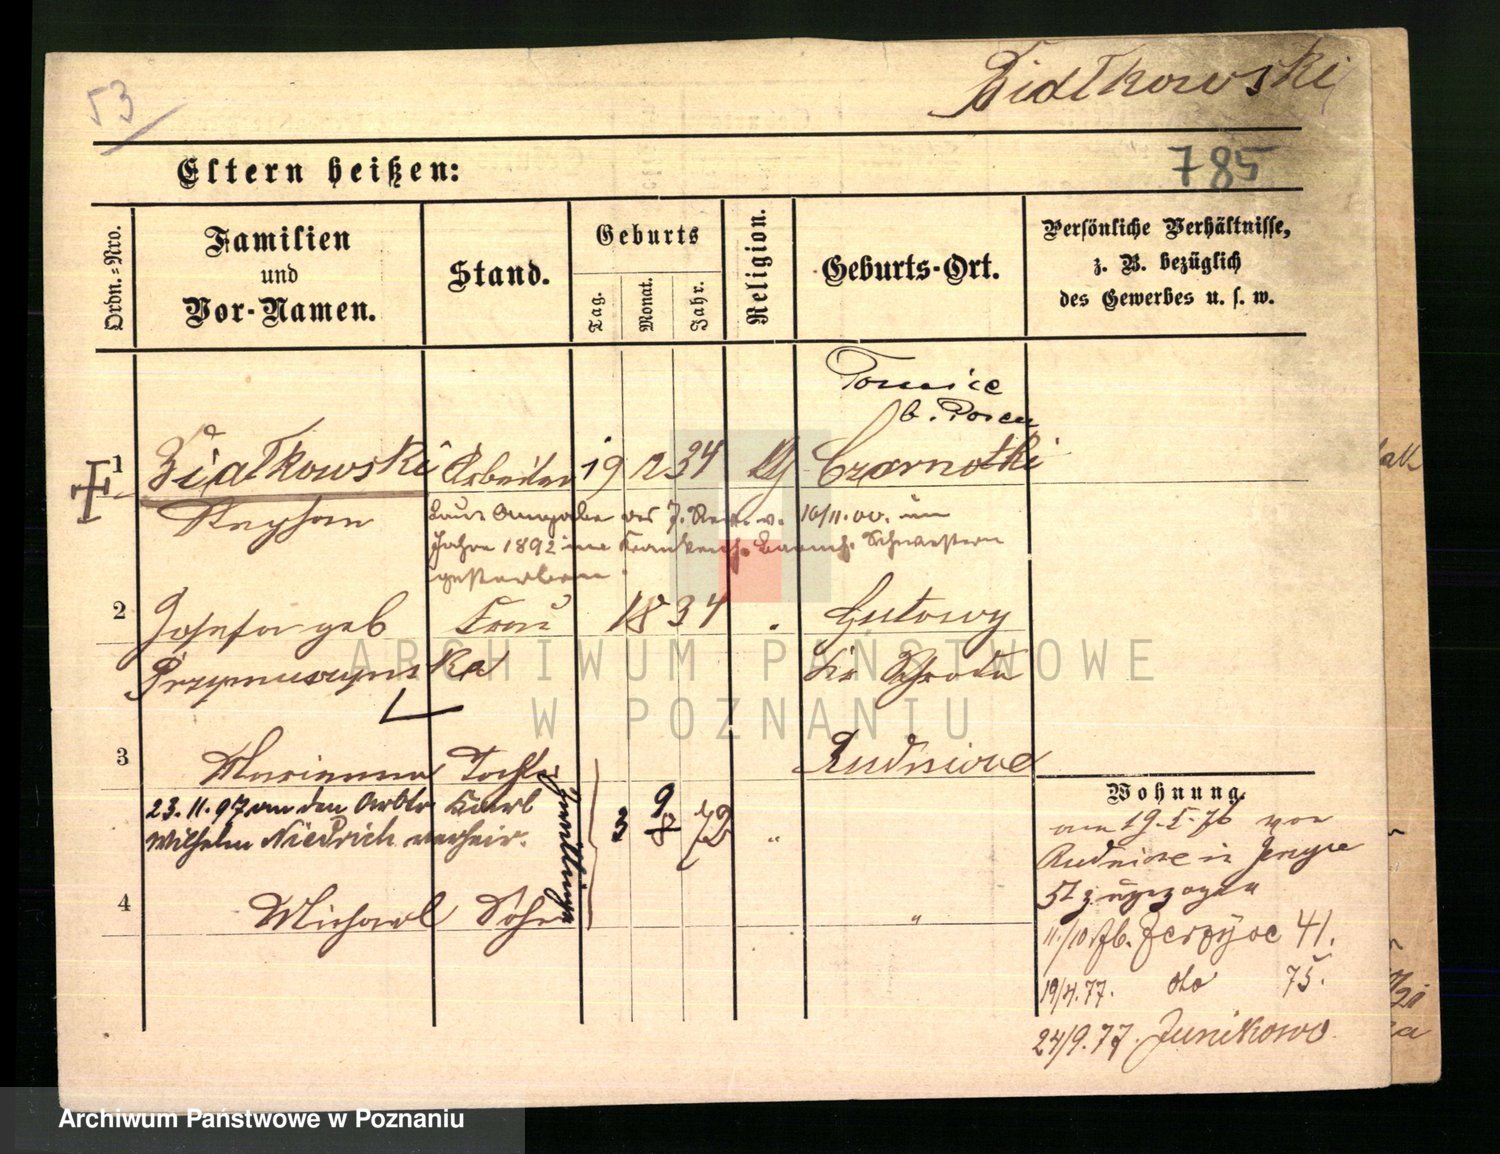 53
Ziatkowski
785
Eltern heißen:
Ordn.-Nro.
Familien
und
Vor-Namen.
Stand.
Geburts
Tag.
Monat.
Jahr.
Religion.
Geburts-Ort.
Persönliche Verhältnisse,
z. B. bezüglich
des Gewerbes u. s. w.
Tomice
b. Posen
1 Ziatkowski Arbeiter 19 12 34 Czarnotki
Stephan
Laut Angabe des v. 10/11.00. im
Jahre 1892 im Krankenh. Barmh. Schwestern
gestorben.
2 Josefa geb Frau 18 34 Gutowy
Krs Schroda
3 Marianna Tochter Rudnicze
23.11.97 an den Arbtr Karl
Wilhelm Niedrich verheir.
Zwillinge
3 9 8 72 "
4 Michael Sohn "
Wohnung.
am 19.5.76 von
Rudnicze in Jerzyce
51 zugezogen
11/10 76. Jerzyce 41.
19/4.77. dto 75.
24/9.77. Junikowo
ARCHIWUM PAŃSTWOWE
W POZNANIU
Archiwum Państwowe w Poznaniu